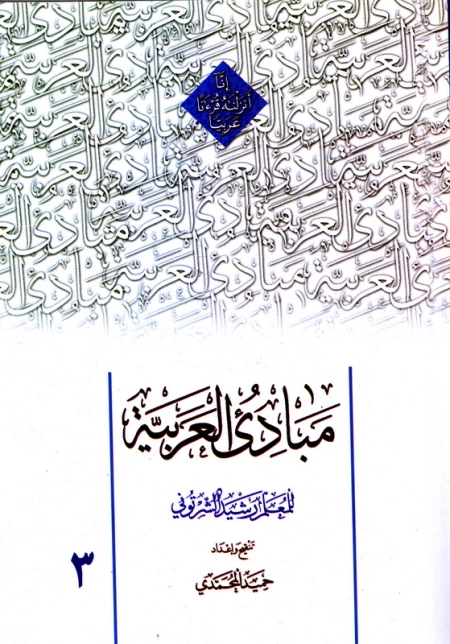 إنّا
أنزلنه قرءنا
عربيا
مبادئ العربيّة
للمعلم رشيد الشرتوني
تنقيح وإعداد
حميد المحمدي
٣